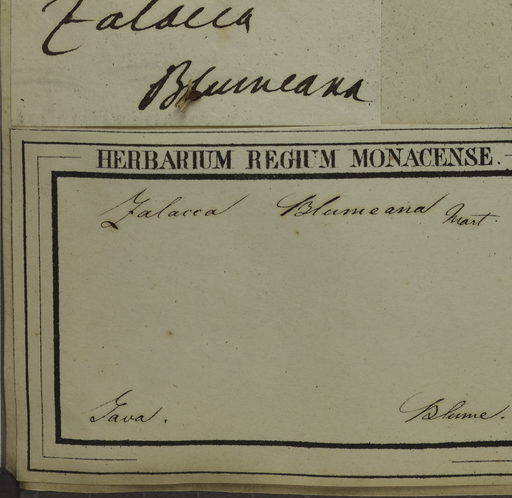 Zalacca
Blumeana
HERBARIUM REGIUM MONACENSE.
Zalacca Blumeana Mart.
Java. Blume.